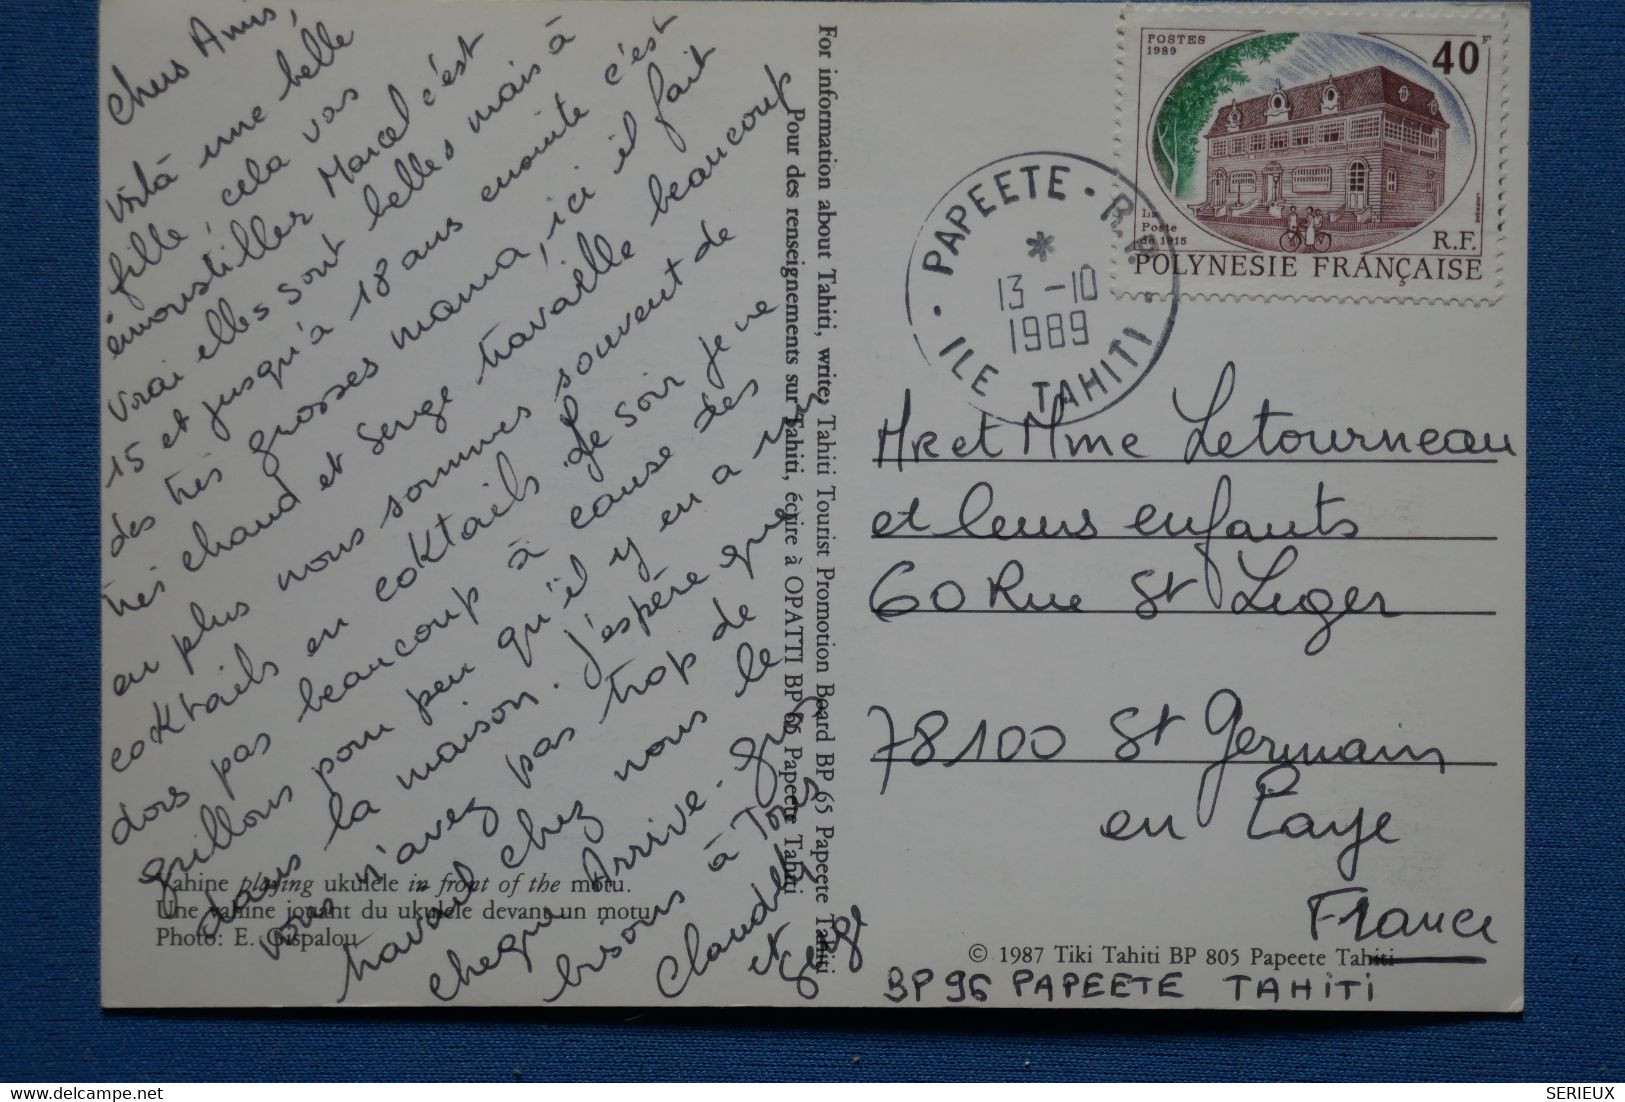 Chers Amis,
voilà une belle
fille, cela vas
émoustiller Marcel c'est
vrai elles sont belles mais à
15 et jusqu'à 18 ans ensuite c'est
des très grosses mama, ici il fait
très chaud et Serge travaille beaucoup
en plus nous sommes souvent de
cocktails en coktails. Le soir je ne
dors pas beaucoup à cause des
grillons pour peu qu'il y en a un
dans la maison. J'espère que
vous n'avez pas trop de
travail chez nous le
chèque arrive. gros
bisous à Tous
Claudie
et Serge
Vahine playing ukulele in front of the motu.
Une vahine jouant du ukulele devant un motu.
Photo: E. Gispalou
For information about Tahiti, write: Tahiti Tourist Promotion Board BP 65 Papeete Tahiti
Pour des renseignements sur Tahiti, écrire à OPATTI BP 65 Papeete Tahiti
POSTES
1989
40 F
La
Poste
de 1915
R.F.
POLYNESIE FRANÇAISE
PAPEETE - R.P.
*
13 -10
1989
ILE TAHITI
Mr et Mme Letourneau
et leurs enfants
60 Rue St Leger
78100 St Germain
en Laye
France
© 1987 Tiki Tahiti BP 805 Papeete Tahiti
BP 96 PAPEETE TAHITI
SERIEUX